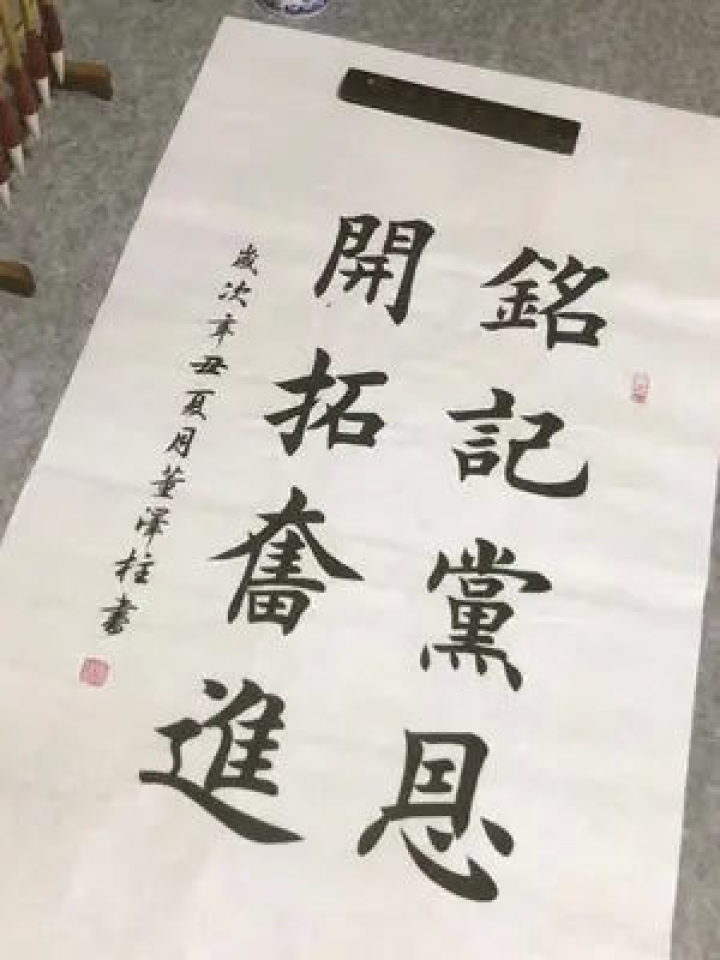 銘記黨恩
開拓奮進
歲次辛丑夏月董澤柱書